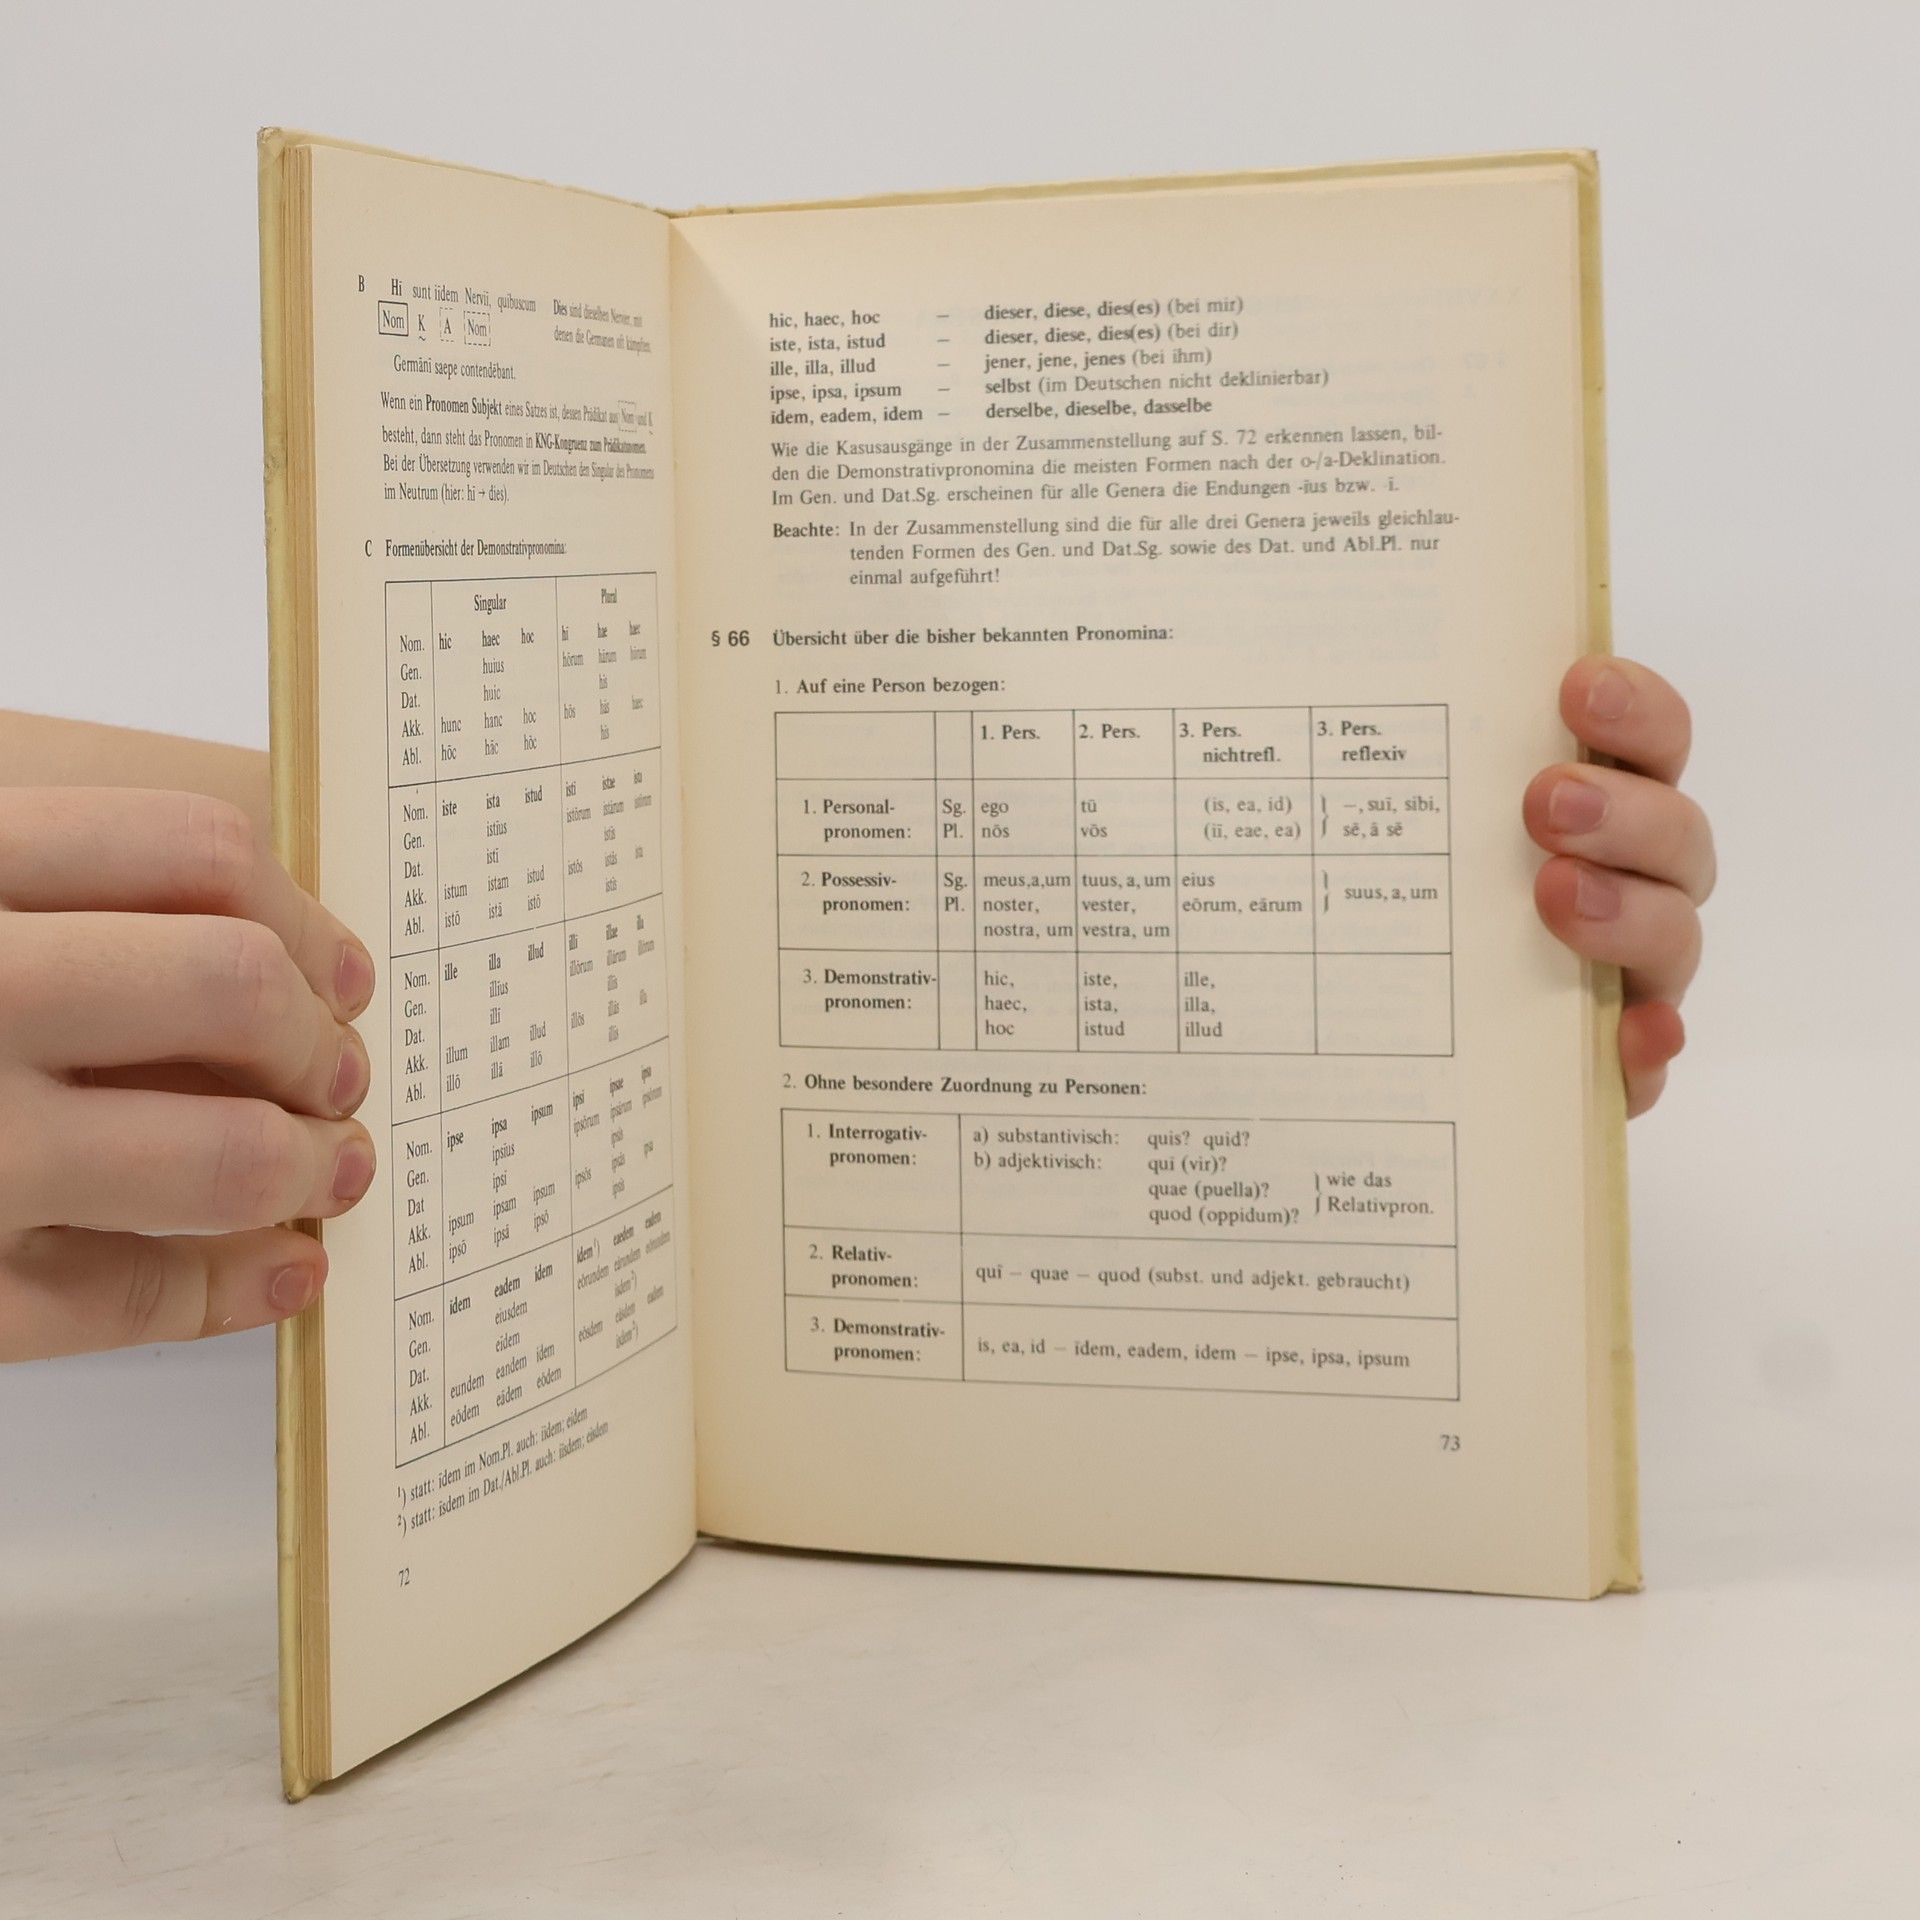 B Hī sunt iīdem Nerviī, quibuscum
Dies sind dieselben Nervier, mit
Nom K A Nom
denen die Germanen oft kämpften.
Germānī saepe contendēbant.
Wenn ein Pronomen Subjekt eines Satzes ist, dessen Prädikat aus Nom und K
besteht, dann steht das Pronomen in KNG-Kongruenz zum Prädikatsnomen.
Bei der Übersetzung verwenden wir im Deutschen den Singular des Pronomens
im Neutrum (hier: hī → dies).
C Formenübersicht der Demonstrativpronomina:
Singular Plural
Nom. hic haec hoc hī hae haec
Gen. huius hōrum hārum hōrum
Dat. huic hīs
Akk. hunc hanc hoc hōs hās haec
Abl. hōc hāc hōc hīs
Nom. iste ista istud istī istae ista
Gen. istīus istōrum istārum istōrum
Dat. istī istīs
Akk. istum istam istud istōs istās ista
Abl. istō istā istō istīs
Nom. ille illa illud illī illae illa
Gen. illīus illōrum illārum illōrum
Dat. illī illīs
Akk. illum illam illud illōs illās illa
Abl. illō illā illō illīs
Nom. ipse ipsa ipsum ipsī ipsae ipsa
Gen. ipsīus ipsōrum ipsārum ipsōrum
Dat ipsī ipsīs
Akk. ipsum ipsam ipsum ipsōs ipsās ipsa
Abl. ipsō ipsā ipsō ipsīs
Nom. īdem eadem idem īdem¹) eaedem eadem
Gen. eiusdem eōrundem eārundem eōrundem
Dat. eīdem īsdem²)
Akk. eundem eandem idem eōsdem eāsdem eadem
Abl. eōdem eādem eōdem īsdem²)
¹) statt: īdem im Nom.Pl. auch: iīdem; eīdem
²) statt: īsdem im Dat./Abl.Pl. auch: iīsdem; eīsdem
72
hic, haec, hoc – dieser, diese, dies(es) (bei mir)
iste, ista, istud – dieser, diese, dies(es) (bei dir)
ille, illa, illud – jener, jene, jenes (bei ihm)
ipse, ipsa, ipsum – selbst (im Deutschen nicht deklinierbar)
īdem, eadem, idem – derselbe, dieselbe, dasselbe
Wie die Kasusausgänge in der Zusammenstellung auf S. 72 erkennen lassen, bil-
den die Demonstrativpronomina die meisten Formen nach der o-/a-Deklination.
Im Gen. und Dat.Sg. erscheinen für alle Genera die Endungen -īus bzw. -ī.
Beachte: In der Zusammenstellung sind die für alle drei Genera jeweils gleichlau-
tenden Formen des Gen. und Dat.Sg. sowie des Dat. und Abl.Pl. nur
einmal aufgeführt!
§ 66 Übersicht über die bisher bekannten Pronomina:
1. Auf eine Person bezogen:
1. Pers. 2. Pers. 3. Pers. 3. Pers.
nichtrefl. reflexiv
1. Personal- Sg. ego tū (is, ea, id) –, suī, sibi,
pronomen: Pl. nōs vōs (iī, eae, ea) sē, ā sē
2. Possessiv- Sg. meus,a,um tuus, a, um eius suus, a, um
pronomen: Pl. noster, vester, eōrum, eārum
nostra, um vestra, um
3. Demonstrativ- hic, iste, ille,
pronomen: haec, ista, illa,
hoc istud illud
2. Ohne besondere Zuordnung zu Personen:
1. Interrogativ- a) substantivisch: quis? quid?
pronomen: b) adjektivisch: quī (vir)?
quae (puella)? wie das
quod (oppidum)? Relativpron.
2. Relativ-
pronomen: quī – quae – quod (subst. und adjekt. gebraucht)
3. Demonstrativ-
pronomen: is, ea, id – īdem, eadem, idem – ipse, ipsa, ipsum
73